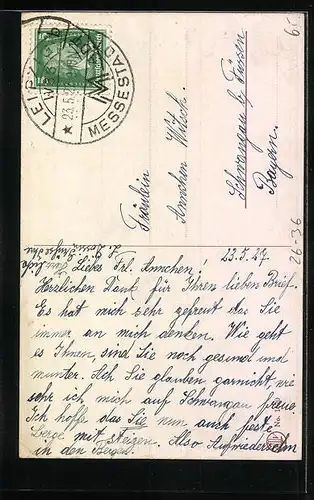 LEIPZIG
23.5.27
MESSESTADT
6-
Fräulein
Annchen Witsch.
Schwangau b. Füssen
Bayern.
26-36
23.5.27
Liebes Frl. Annchen!
Herzlichen Dank für Ihren lieben Brief.
Es hat mich sehr gefreut das Sie
immer an mich denken. Wie geht
es Ihnen, sind Sie noch gesund und
munter. Ach Sie glauben garnicht, wie
sehr ich mich auf Schwangau freue
Ich hoffe das Sie nun auch feste
Berge mit steigen. Also Aufwiedersehn
in den Bergen.